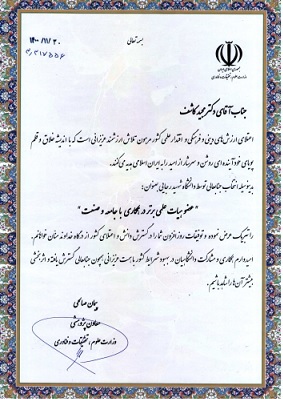 بسمه تعالی
۱۴۰۰/۱۱/۲۰
۳۱۷۵۵۶
جمهوری اسلامی ایران
وزارت علوم، تحقیقات و فناوری
جناب آقای دکتر مجید کاشف
اعتلای ارزش‌های دینی و فرهنگی و اقتدار علمی کشور مرهون تلاش ارزشمند عزیزانی است که با اندیشه خلاق و قلم
پویای خود آینده‌ای روشن و سرشار از امید را به ایران اسلامی هدیه می‌کنند.
بدینوسیله انتخاب جنابعالی توسط دانشگاه شهید رجایی بعنوان:
" عضو هیات علمی برتر در همکاری با جامعه و صنعت "
را تبریک عرض نموده و توفیقات روزافزون شما را در گسترش دانش و اعتلای کشور از درگاه خداوند منان خواهانم.
امیدوارم همکاری و مشارکت دانشگاهیان در بهبود شرایط کشور با همت عزیزانی همچون جنابعالی گسترش یافته و اثربخشی
بیشتر آن‌ها را شاهد باشیم.
پیمان صالحی
معاون پژوهشی
وزارت علوم، تحقیقات و فناوری